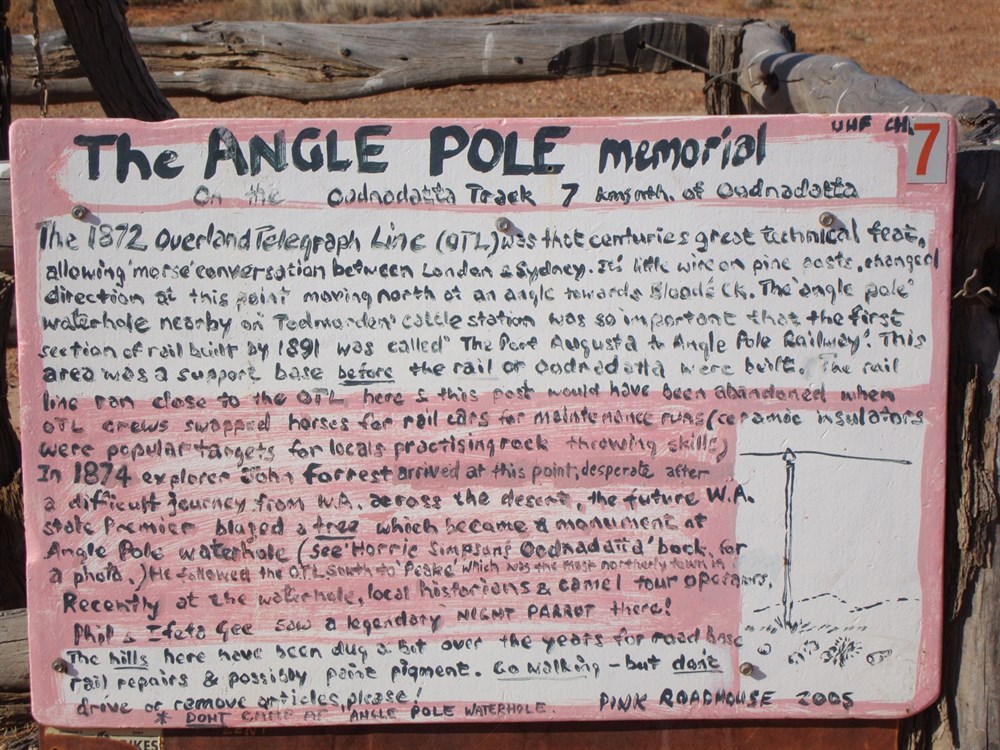 UHF CH. 7
The ANGLE POLE memorial
On the Oodnadatta Track 7 kms nth. of Oodnadatta
The 1872 Overland Telegraph Line (OTL) was that centuries great technical feat,
allowing 'morse' conversation between London & Sydney. It's little wire on pine posts, changed
direction at this point moving north at an angle towards Bloods Ck. The 'angle pole'
waterhole nearby on 'Todmorden' cattle station was so important that the first
section of rail built by 1891 was called "The Port Augusta to Angle Pole Railway". This
area was a support base before the rail or Oodnadatta were built. The rail
line ran close to the OTL here & this post would have been abandoned when
OTL crews swapped horses for rail cars for maintenance runs (ceramic insulators
were popular targets for locals practising rock throwing skills)
In 1874 explorer John Forrest arrived at this point, desperate after
a difficult journey from W.A. across the desert, the future W.A.
state Premier blazed a tree which became a monument at
Angle Pole waterhole (see 'Horrie Simpsons Oodnadatta' book, for
a photo.) He followed the OTL south to 'Peake' which was the most northerly town in
Recently at the waterhole, local historians & camel tour operators,
Phil & Ifeta Gee saw a legendary NIGHT PARROT there!
The hills here have been dug a bit over the years for road base
rail repairs & possibly paint pigment. Go walking - but don't
drive or remove articles, please! PINK ROADHOUSE 2005
* DONT CAMP AT ANGLE POLE WATERHOLE.